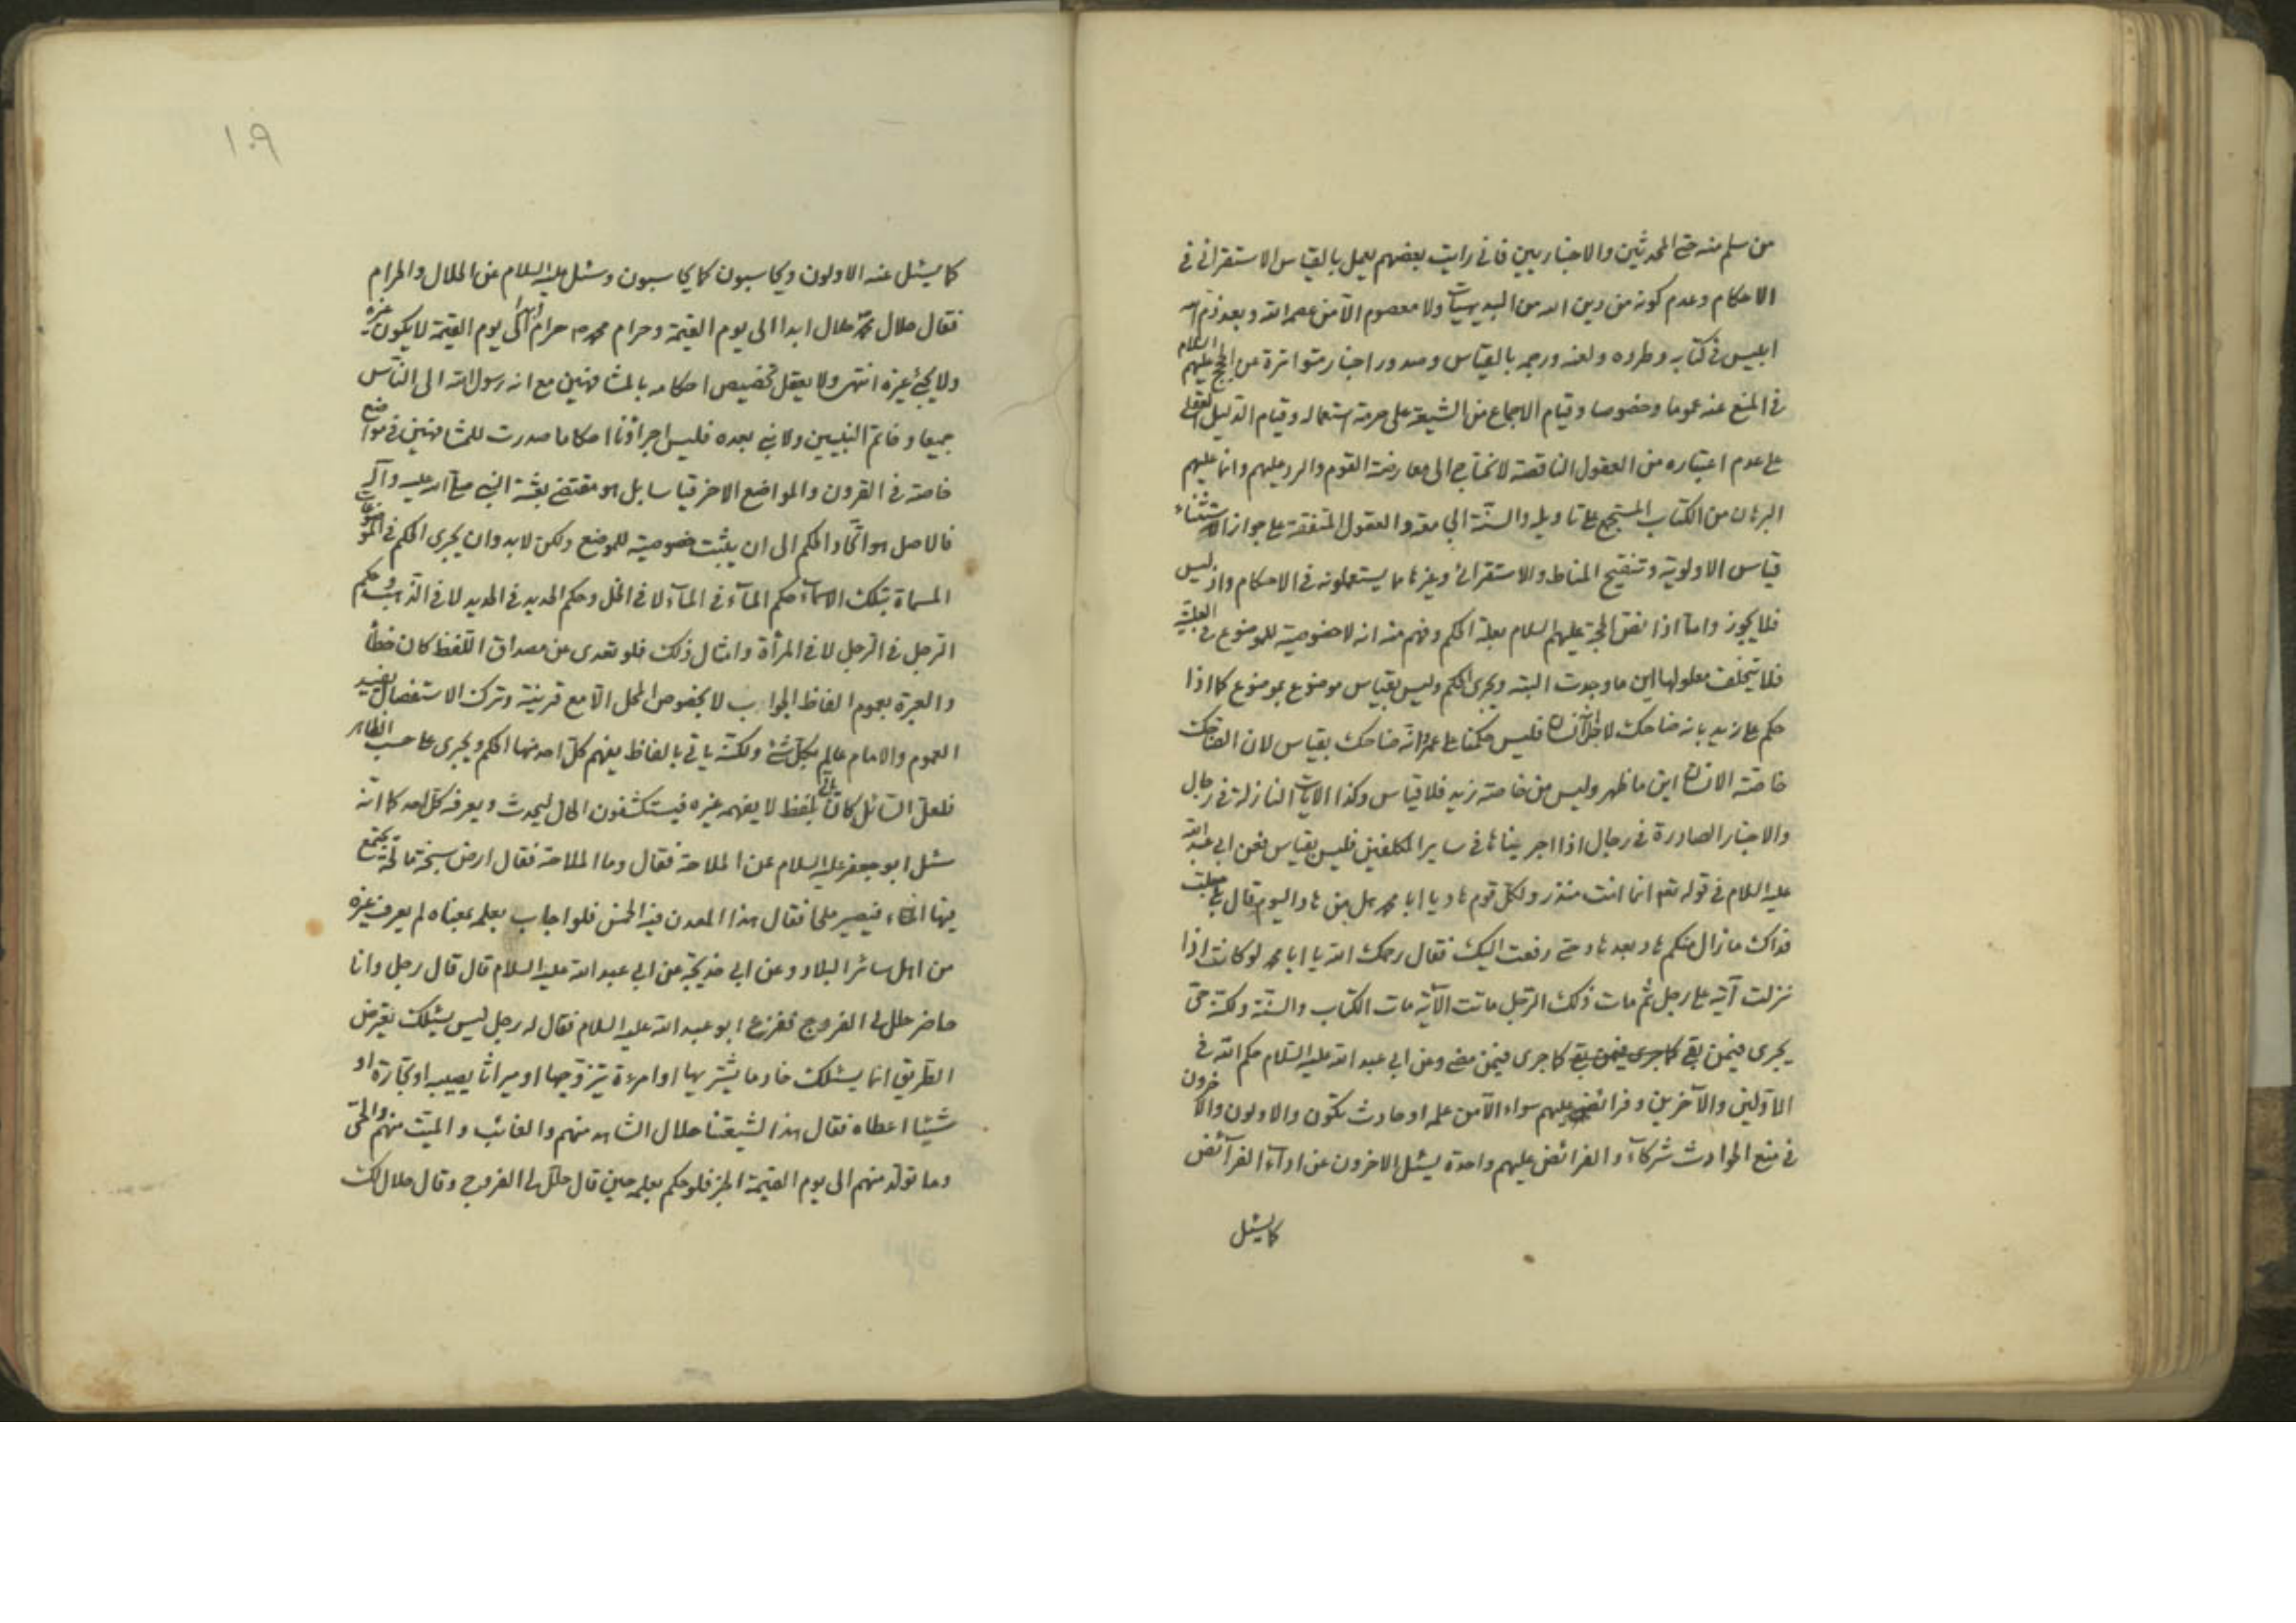 من سلم منه حتى المحدثين والاخباريين فاني رايت بعضهم يعمل بالقياس الاستقرائي في
الاحكام وعدم كونه من دين الله من البديهيات ولا معصوم الا من عصمه الله وبعد ذم الله
ابليس في كتابه وطرده ولعنه ورجمه بالقياس وصدور اخبار متواترة عن الحجج عليهم السلام
في المنع عنه عموما وخصوصا وقيام الاجماع من الشيعة على حرمة استعماله وقيام الدليل العقلي
على عدم اعتباره من العقول الناقصة لانحتاج الى معارضة القوم والرد عليهم وانما عليهم
البرهان من الكتاب المستجمع على تاويله والسنة الجامعة والعقول المتفقة على جواز الاستثناء
قياس الاولوية وتنقيح المناط والاستقرائي وغيرها ما يستعملونه في الاحكام واذ ليس
فلا يجوز واما اذا نص الحجة عليهم السلام بعلة الحكم وفهم منه انه لا خصوصية للموضوع في العلية
فلا يتخلف معلولها اين ما وجدت البته ويجري الحكم وليس بقياس موضوع بموضوع كما اذا
حكم على زيد بانه ضاحك لاجل انه انسان فليس حكمنا على عمرو انه ضاحك بقياس لان الضاحك
خاصة الانسان اين ما ظهر وليس من خاصة زيد فلا قياس وكذا الايات النازلة في رجال
والاخبار الصادرة في رجال اذا اجريناها في ساير المكلفين فليس بقياس فعن ابي عبد الله
عليه السلام في قوله تعالى انما انت منذر ولكل قوم هاد يا ابا محمد هل من هاد اليوم قال بلى جعلت
فداك ما زال منكم هاد بعد هاد حتى رفعت اليك فقال رحمك الله يا ابا محمد لو كانت اذا
نزلت آية على رجل ثم مات ذلك الرجل ماتت الآية مات الكتاب والسنة ولكنه حي
يجري فيمن بقي كما جرى فيمن بقي كما جرى فيمن مضى وعن ابي عبد الله عليه السلام حكم الله في
الاولين والآخرين وفرائضه عليهم سواء الا من علة او حادث يكون والاولون والاخرون
في منع الحوادث شركآء والفرائض عليهم واحدة يسئل الاخرون عن ادآء الفرآئض
كما يسئل
١٠٩
كما يسئل عنه الاولون ويحاسبون كما يحاسبون وسئل عليه السلام عن الحلال والحرام
فقال حلال محمد حلال ابدا الى يوم القيمة وحرام محمد ص حرام ابدا الى يوم القيمة لا يكون غيره
ولا يجئ غيره انتهى ولا يعقل تخصيص احكامه بالمشافهين مع انه رسول الله الى الناس
جميعا وخاتم النبيين ولا نبي بعده فليس اجراؤنا احكاما صدرت للمشافهين في مواضع
خاصة في القرون والمواضع الاخر قياسا بل هو مقتضى بعثة النبي صلى الله عليه وآله
فالاصل هو اتحاد الحكم الى ان يثبت خصوصية للموضع ولكن لابد وان يجري الحكم في الموضوعات
المسماة بتلك الاسمآء حكم المآء في المآء لا في الخل وحكم الحديد في الحديد لا في الذهب وحكم
الرجل في الرجل لا في المرأة وامثال ذلك فلو تعدى عن مصداق اللفظ كان خطأ
والعبرة بعموم الفاظ الجواب لا بخصوص المحل الا مع قرينة وترك الاستفصال يفيد
العموم والامام عالم بكل شئ ولكنه ياتي بالفاظ يفهم كل احد منها الحكم ويجري على حسب الظاهر
فلعل السائل كان يأتي بلفظ لا يفهمه غيره فيستكشفون الحال ليحدث ويعرفه كل احد كما انه
سئل ابو جعفر عليه السلام عن الملاحة فقال وما الملاحة فقال ارض سبخة مالحة يجتمع
فيها الماء فيصير ملحا فقال هذا المعدن فيه الخمس فلو اجاب بعلمه بمعناه لم يعرف غيره
من اهل سائر البلاد وعن ابي خديجة عن ابي عبد الله عليه السلام قال قال رجل وانا
حاضر حلل لي الفروج ففزع ابو عبد الله عليه السلام فقال له رجل ليس يسئلك يعترض
الطريق انما يسئلك خادما يشتريها او امرءة يتزوجها او ميراثا يصيبه او تجارة او
شيئا اعطاه فقال هذا لشيعتنا حلال الشاهد منهم والغائب والميت منهم والحي
وما تولد منهم الى يوم القيمة الخبر فلو حكم بعلمه حين قال حلل لي الفروج وقال حلال لك